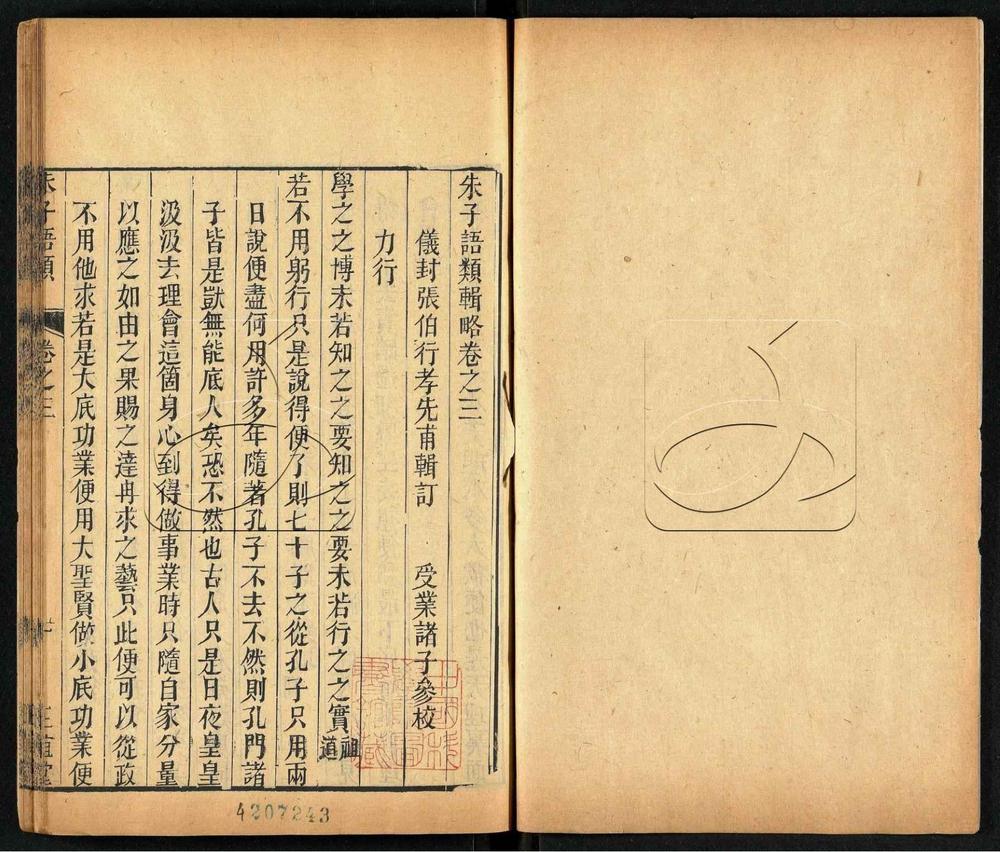 朱子語類輯略卷之三
儀封張伯行孝先甫輯訂　受業諸子參校
力行
學之之博未若知之之要知之之要未若行之之實祖道
若不用躬行只是說得便了則七十子之從孔子只用兩
日說便盡何用許多年隨著孔子不去不然則孔門諸
子皆是獃無能底人矣恐不然也古人只是日夜皇皇
汲汲去理會這箇身心到得做事業時只隨自家分量
以應之如由之果賜之達冉求之藝只此便可以從政
不用他求若是大底功業便用大聖賢做小底功業便
朱子語類　卷之三
4207243